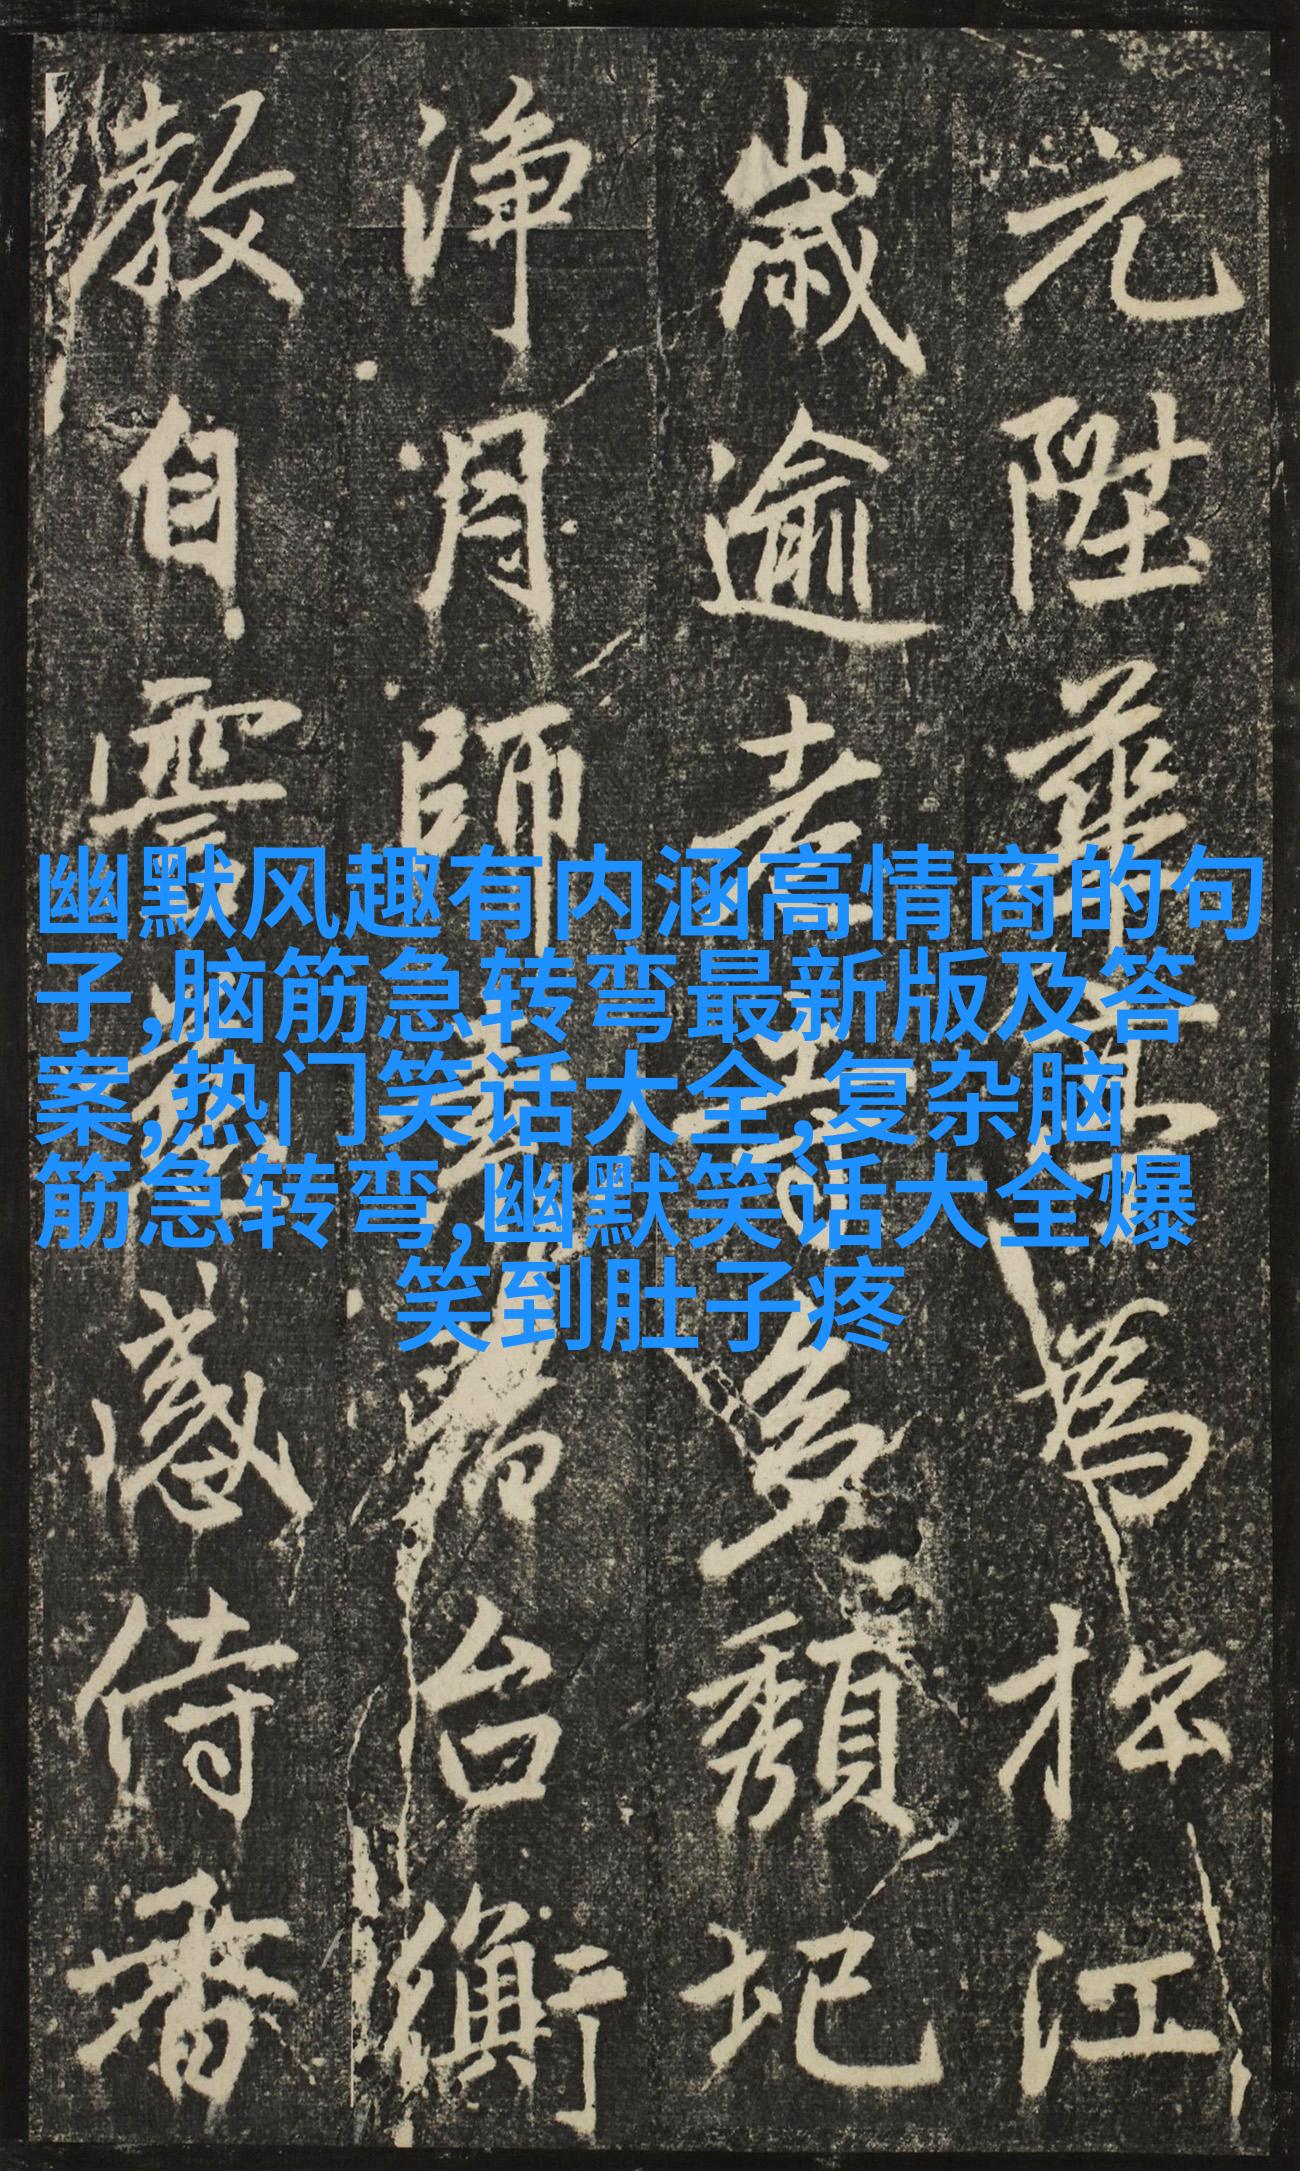 元陞華宜為于邵江
歲逾老多頽圮
淨月師台衡
教自雲感侍香
幽默风趣有内涵高情商的句
子,脑筋急转弯最新版及答
案,热门笑话大全,复杂脑
筋急转弯,幽默笑话大全爆
笑到肚子疼